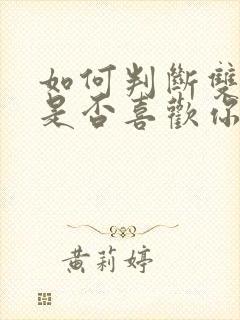 如何判斷雙
是否喜歡你
黃莉婷